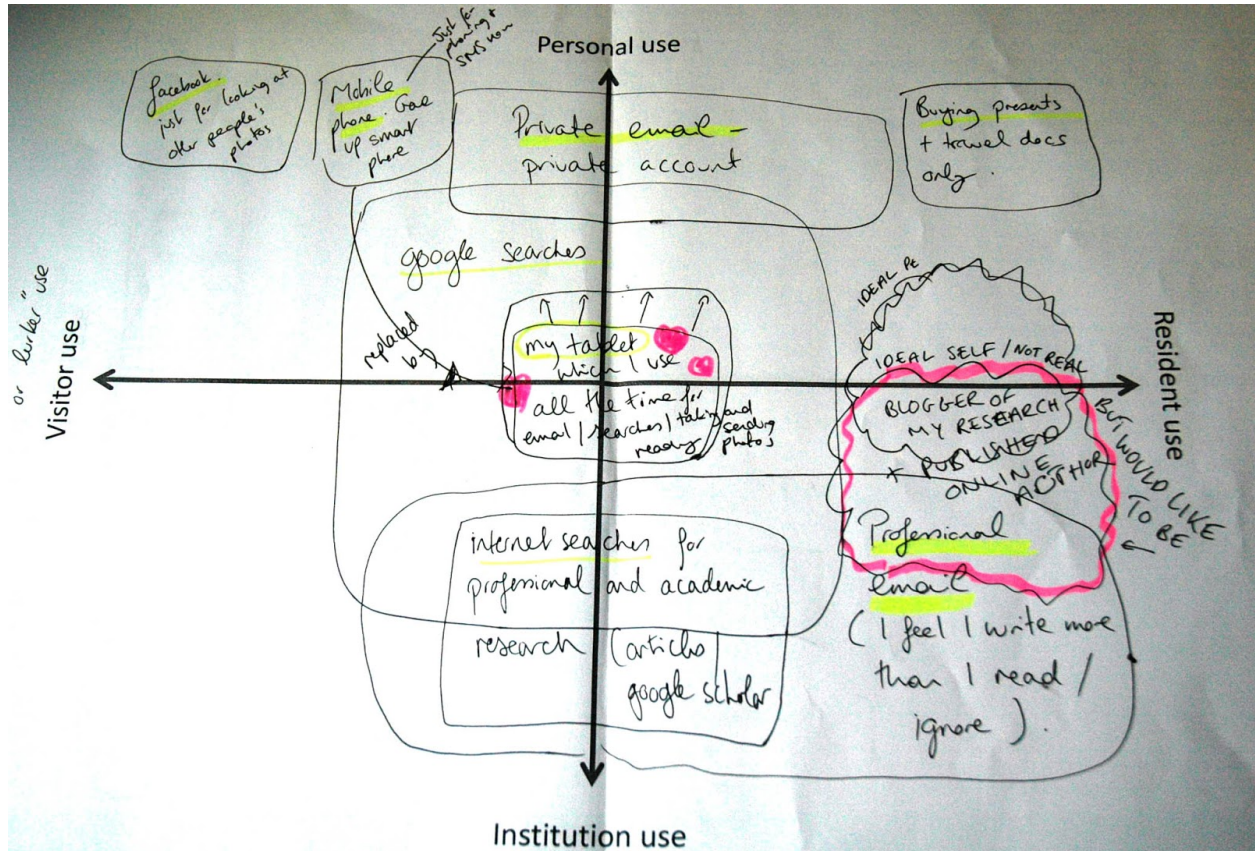 Personal use
facebook.
just for looking at
other people's
photos
Mobile
phone. Gave
up smart
phone
Just for
phoning +
SMS now
Private email –
private account
Buying presents
+ travel docs
only.
google searches
replaced
by
my tablet
which I use
all the time for
email / searches / taking and
sending
reading
photos
or "lurker" use
Visitor use
Resident use
IDEAL
IDEAL SELF / NOT REAL
BLOGGER OF
MY RESEARCH
+ PUBLISHED
ONLINE
AUTHOR
BUT WOULD LIKE
TO BE
internet searches for
professional and academic
research (articles /
google scholar
Professional
email
( I feel I write more
than I read /
ignore ).
Institution use